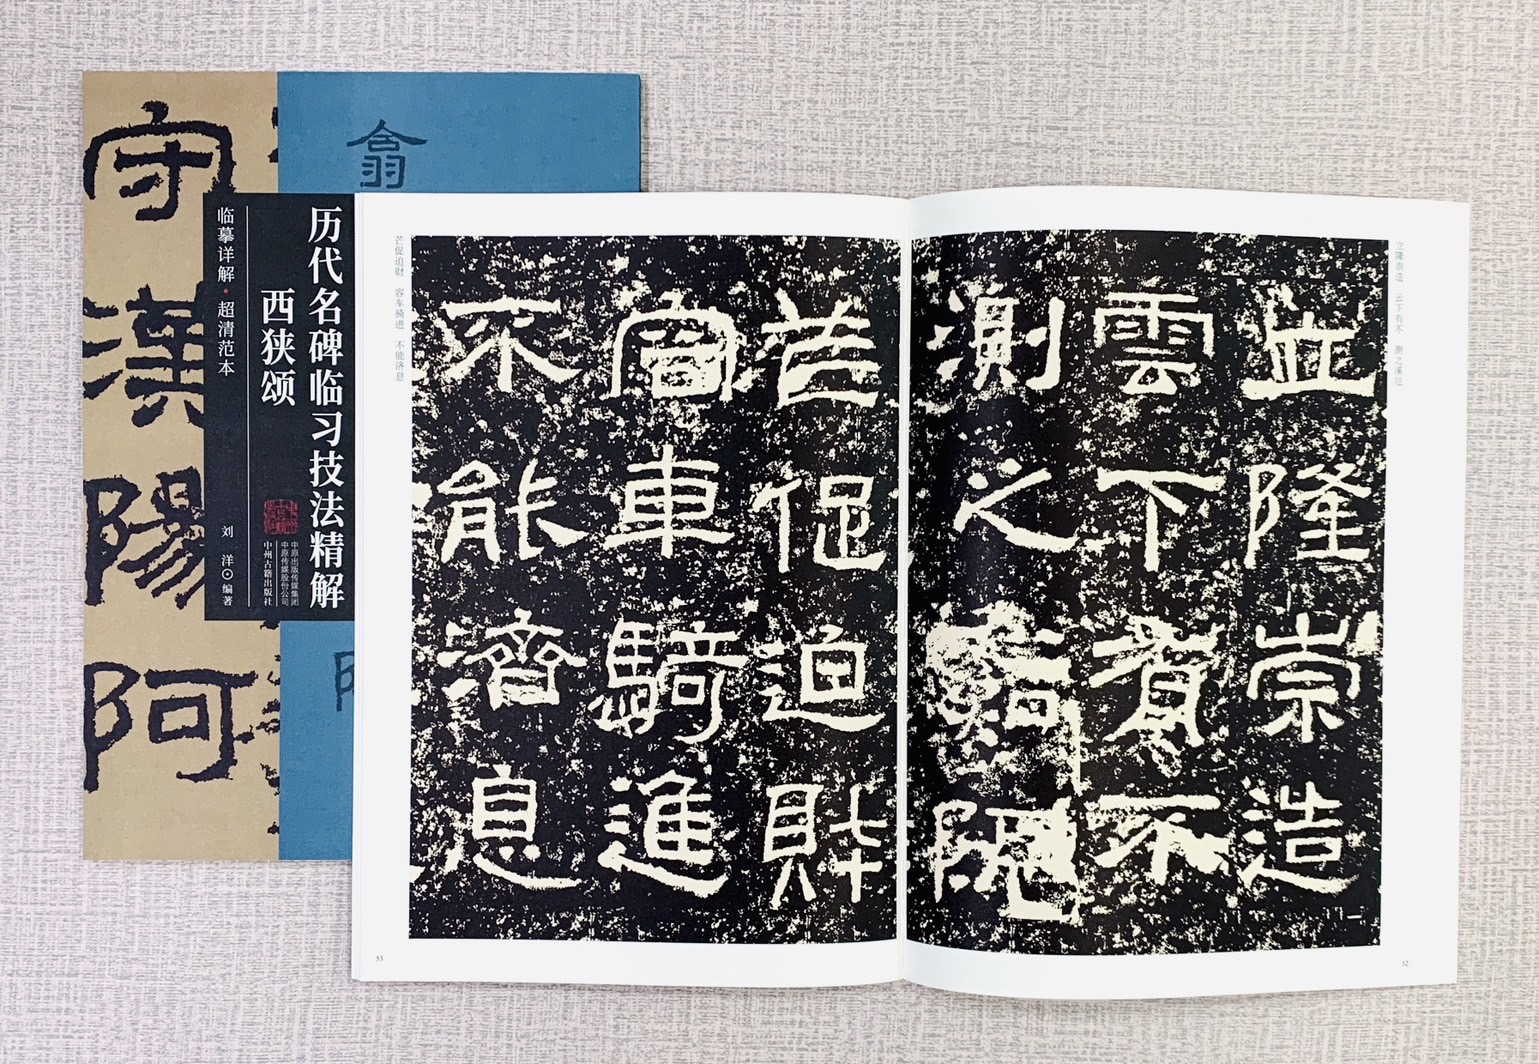 守漢陽阿
翕
历代名碑临习技法精解
西狭颂
临摹详解·超清范本
刘 洋⊙编著
中原出版传媒集团
中原传媒股份公司
中州古籍出版社
立隆崇造 云下有不 测之溪阨
立隆崇造
雲下有不
測之谿阨
52
芒促迫財
容車騎進
不能濟息
芒促迫财 容车骑进 不能济息
53